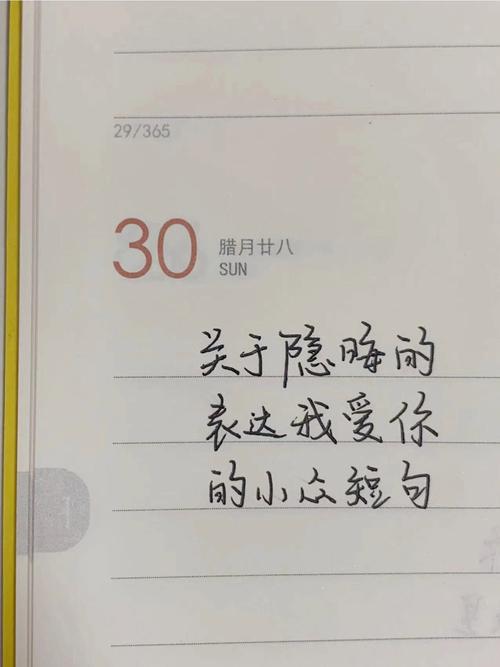 29/365
30 腊月廿八
SUN
关于隐晦的
表达我爱你
的小众短句
1